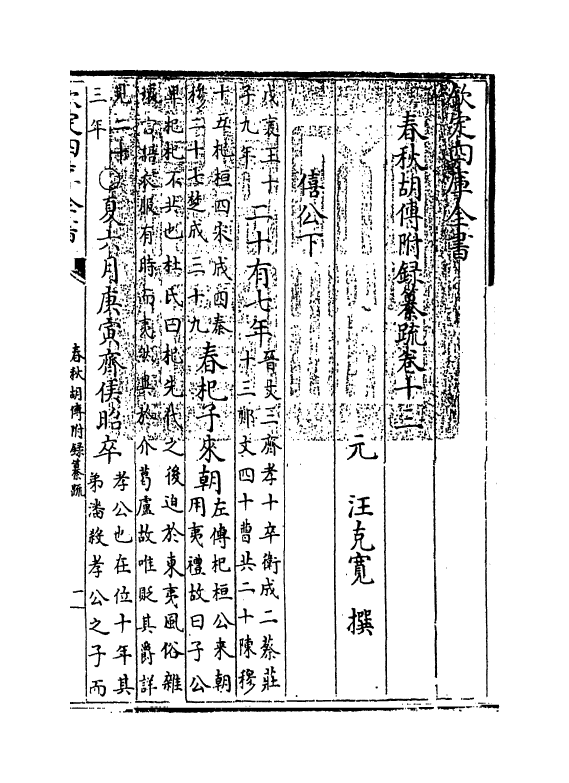 欽定四庫全書
春秋胡傳附録纂疏卷十三
元 汪克寛 撰
僖公下
戊襄王十
子九年
二十有七年
晉文三齊孝十卒衛成二蔡莊
十三鄭文四十曹共二十陳穆
十五杞桓四宋成四秦
穆二十七楚成三十九
春杞子來朝
左傳杞桓公來朝
用夷禮故曰子公
卑杞杞不共也杜氏曰杞先代之後迫於東夷風俗雜
壞言語衣服有時而夷故異於介葛盧故唯貶其爵詳
見二十
三年
○夏六月庚寅齊侯昭卒
孝公也在位十年其
弟潘殺孝公之子而
欽定四庫全書
春秋胡傳附録纂疏
一